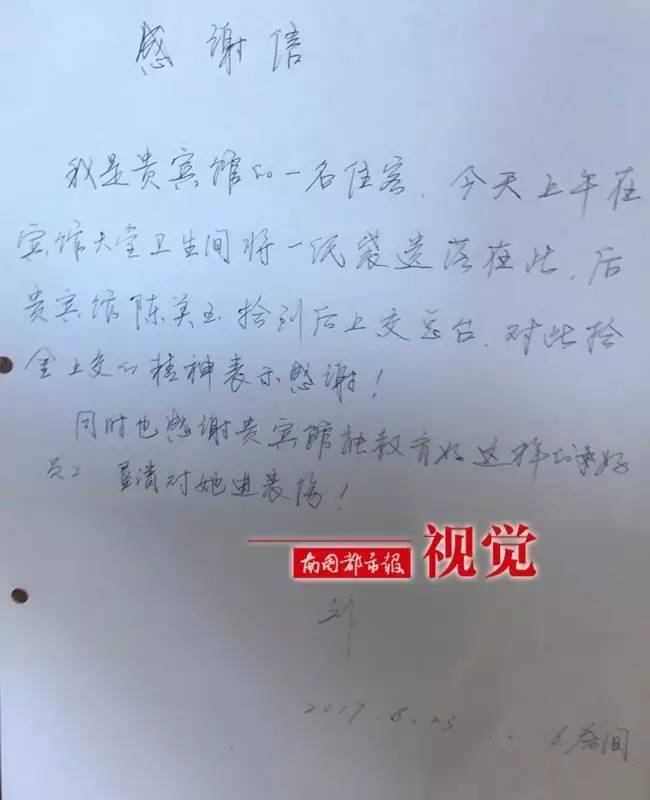 感谢信
我是贵宾馆的一名住客.今天上午在
宾馆大堂卫生间将一纸袋遗落在此.后
贵宾馆陈美玉拾到后上交总台.对此拾
金上交的精神表示感谢!
同时也感谢贵宾馆能教育好这样的好
员工 请对她进表扬!
南国都市报 视觉
刘
2017.8.23
房间